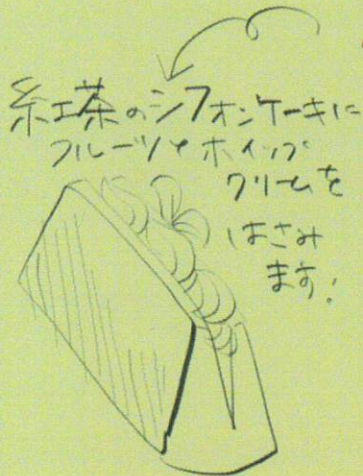 紅茶のシフォンケーキに
フルーツとホイップ
クリームを
はさみ
ます!